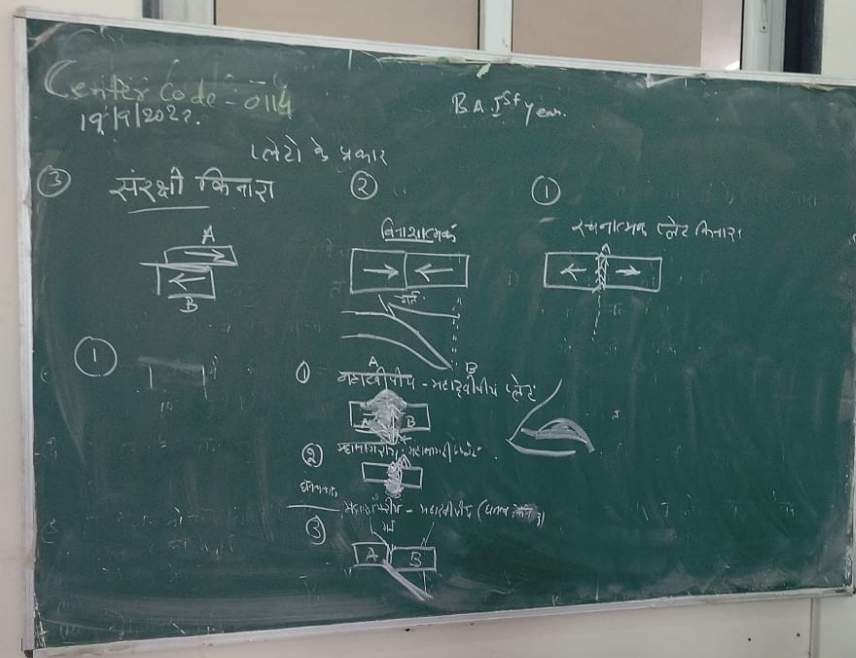 Center Code - 0114
19/9/2022.
B A Ist year.
प्लेटो के प्रकार
③ संरक्षी किनारा
A
B
②
विनाशात्मक
गर्त
①
रचनात्मक प्लेट किनारा
①
① महाद्वीपीय - महाद्वीपीय प्लेट
A B
A B
② महासागरीय - महासागरीय प्लेट
③
महाद्वीपीय
गर्त
A B